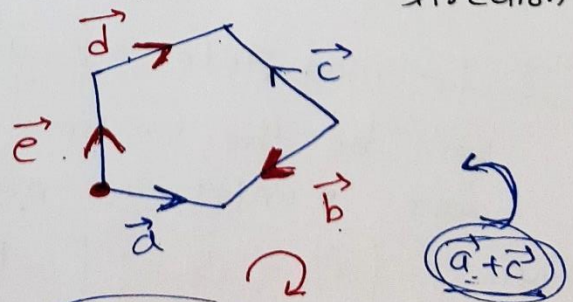 d⃗
c⃗
e⃗
b⃗
a⃗
a⃗ + c⃗